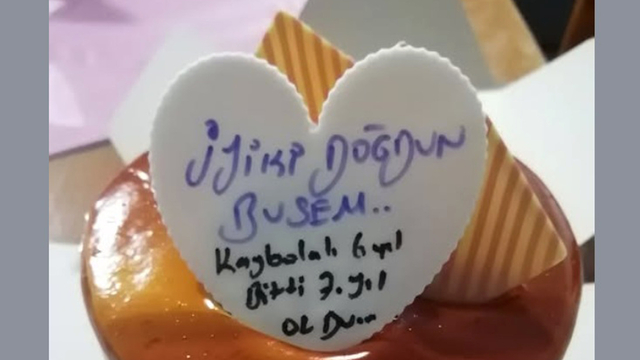 İyiki DOĞDUN
BUSEM..
Kaybolalı 6 yıl
Bitti 7. yıl
OLDu...